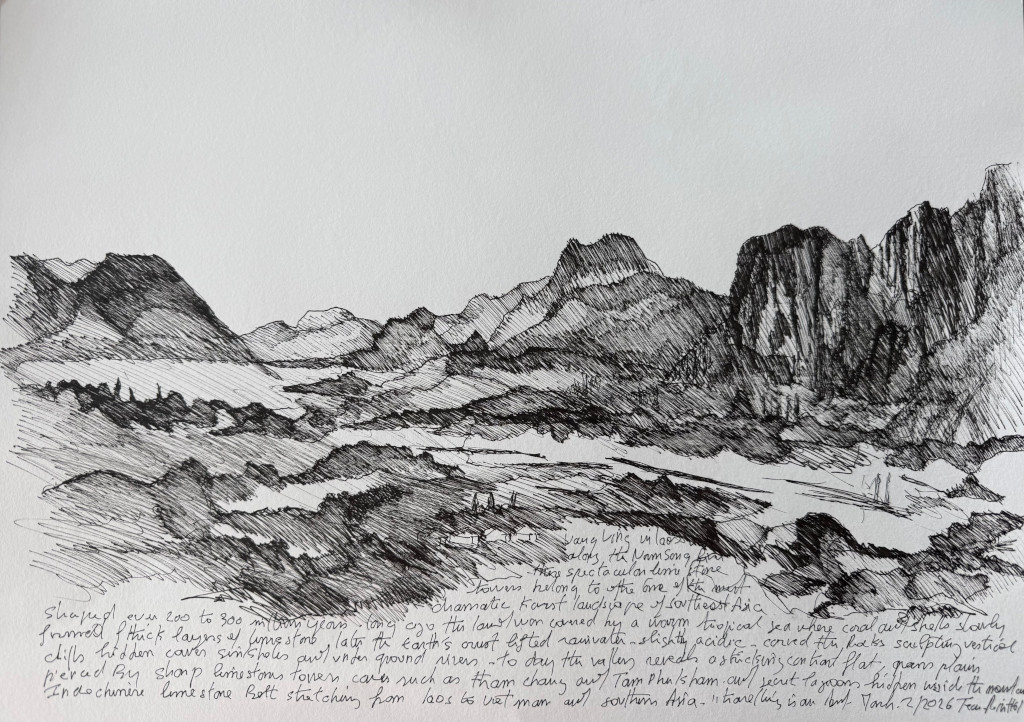 Vang Ving in Laos
along the Nam Song
these spectacular lime stone
towers belong to the one of the most
dramatic Karst landscape of southeast Asia
Shaped over 200 to 300 million years long ago the land was covered by a warm tropical sea where coral and shells slowly
formed thick layers of limestone later the earth's crust lifted rainwater - slightly acidic - carved the rocks sculpting vertical
cliffs hidden caves sinkholes and under ground rivers - to day the valley reveals a contrast flat, green plains
pierced By sharp limestone towers caves such as tham chang and Tam and secret lagoons hidden inside the mountain
Indochinese limestone Belt stretching from laos to Viet nam and southern Asia - "travelling is an 2/2026